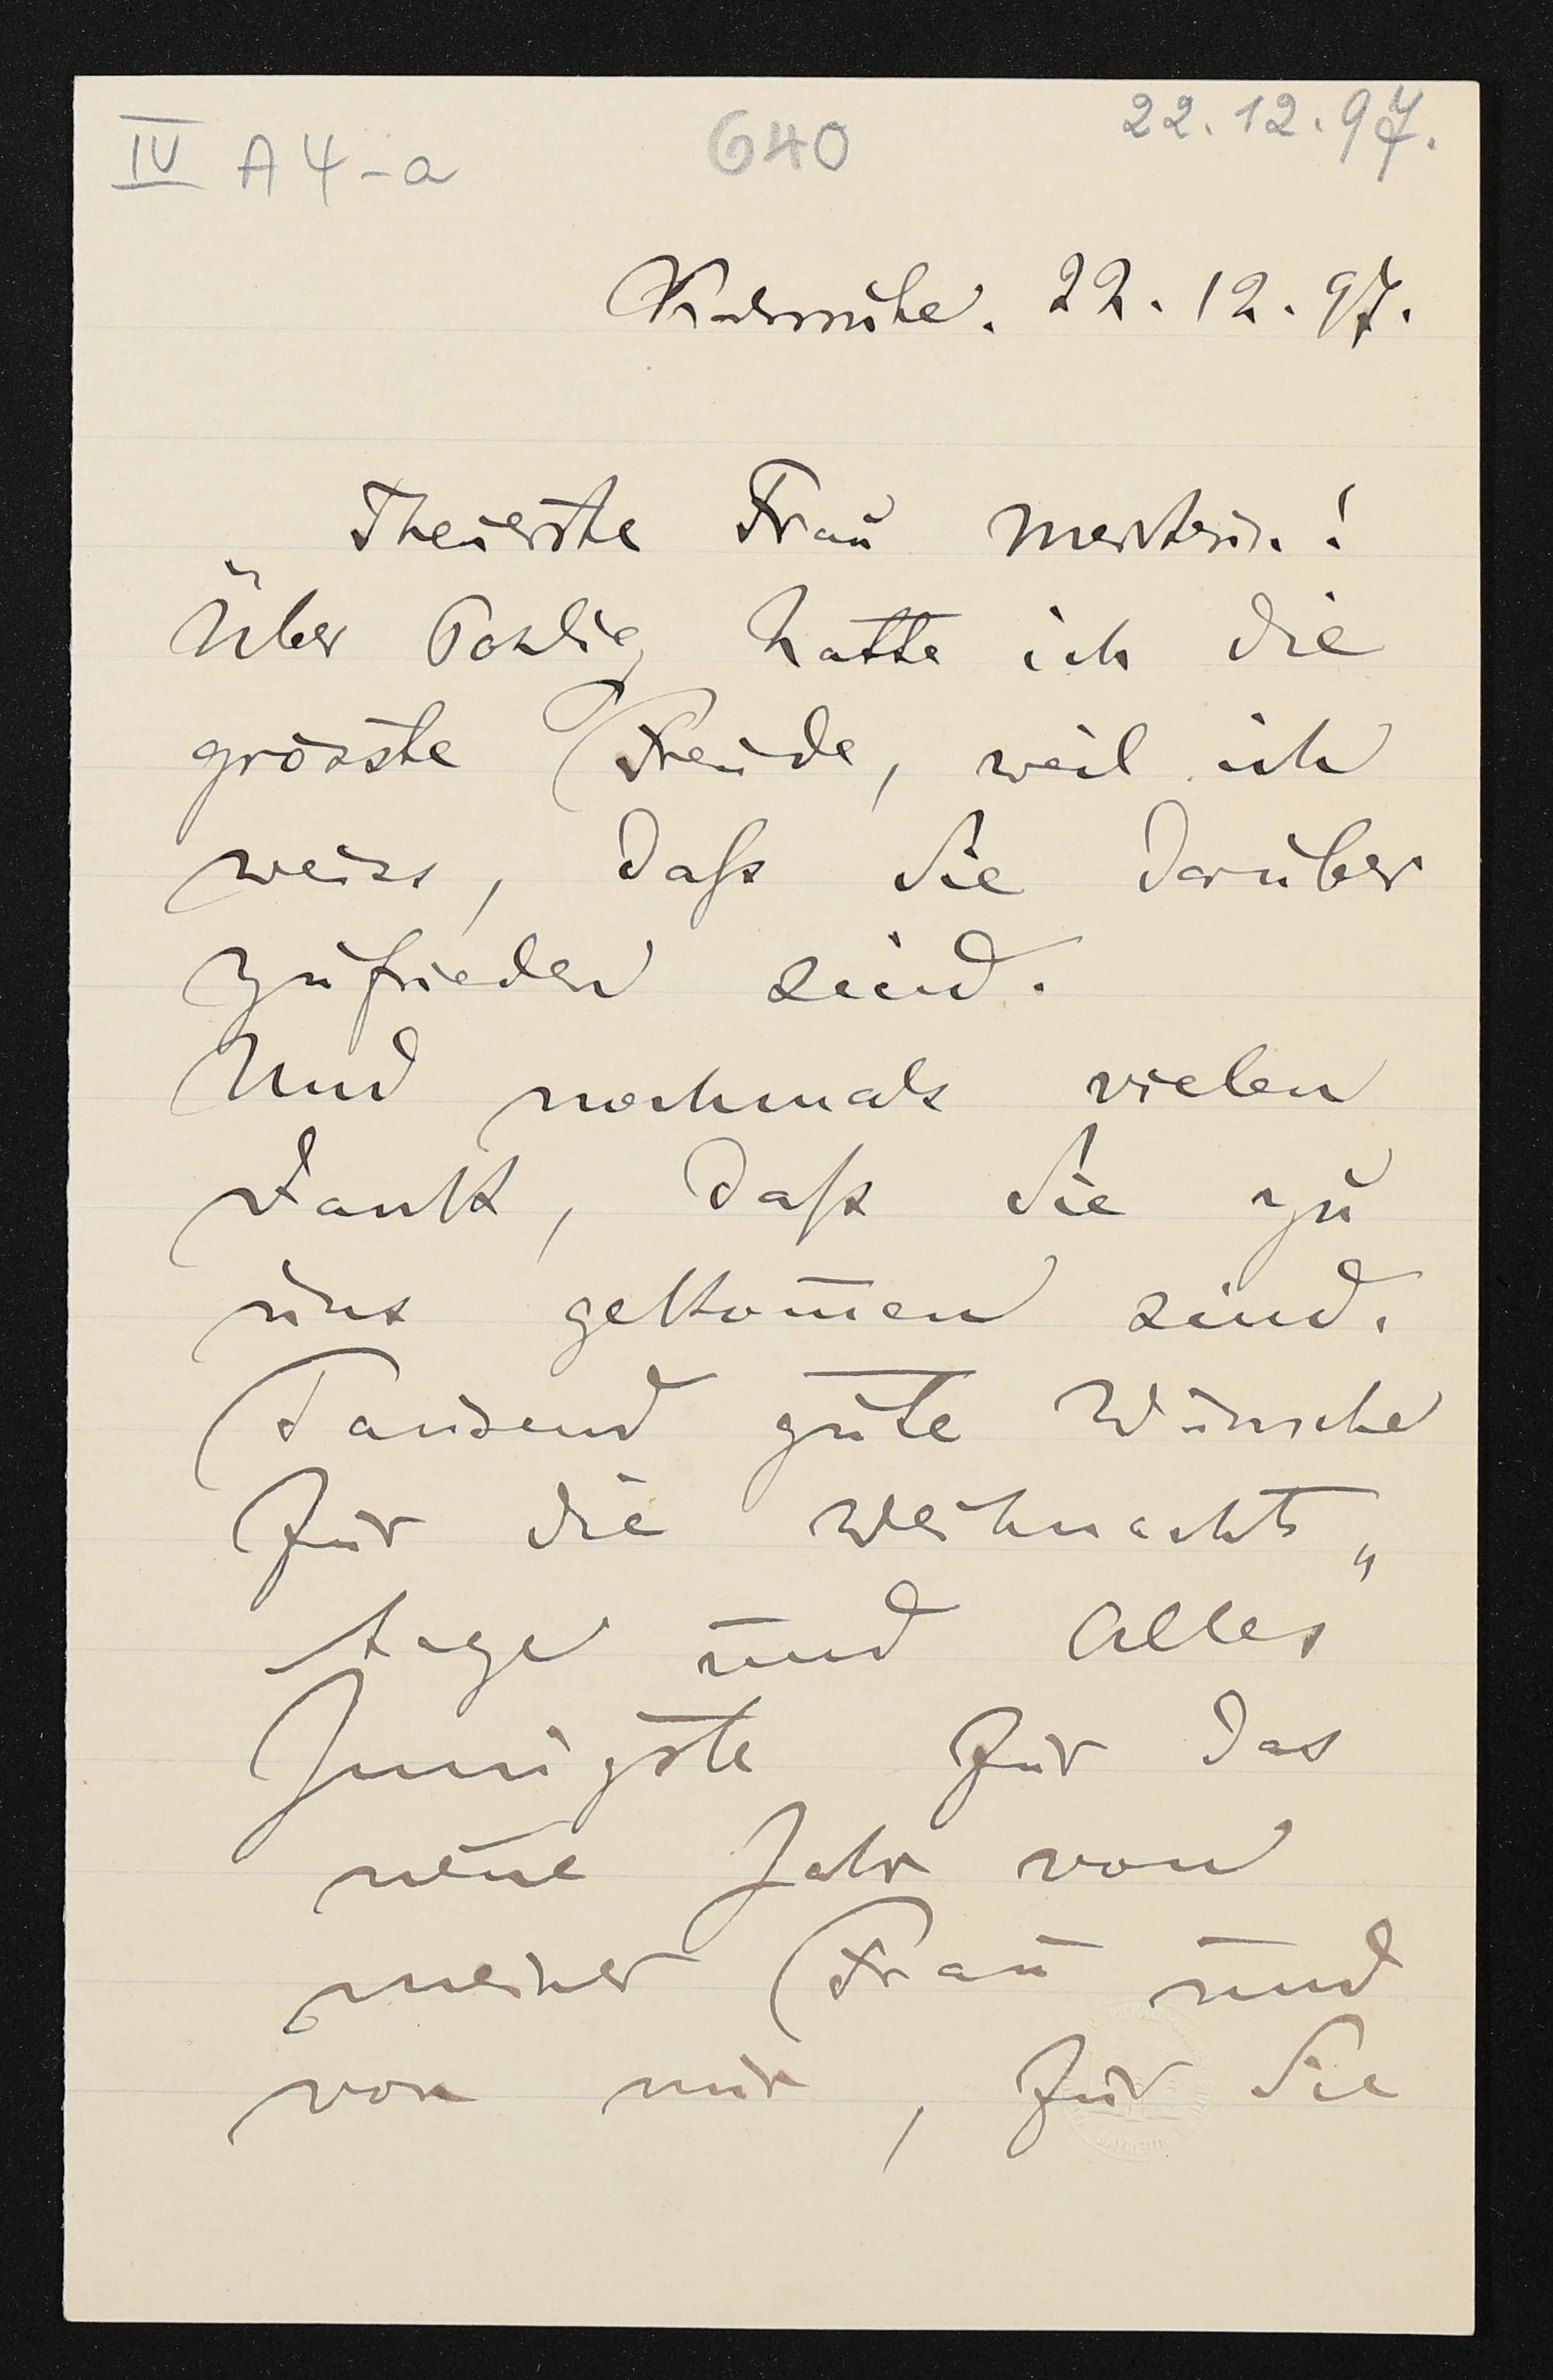 IV A 4-a 640 22.12.97.
Karlsruhe. 22.12.97.
Theuerste Frau Meisterin!
Über Pohlig hatte ich die
grösste Freude, weil ich
weiss, daſs Sie darüber
zufrieden sind.
Und nochmals vielen
Dank, daſs Sie zu
uns gekom̄en sind.
Tausend gute Wünsche
für die Weihnachts„
tage und Alles
Innigste für das
neue Jahr von
meiner Frau und
von mir, für Sie